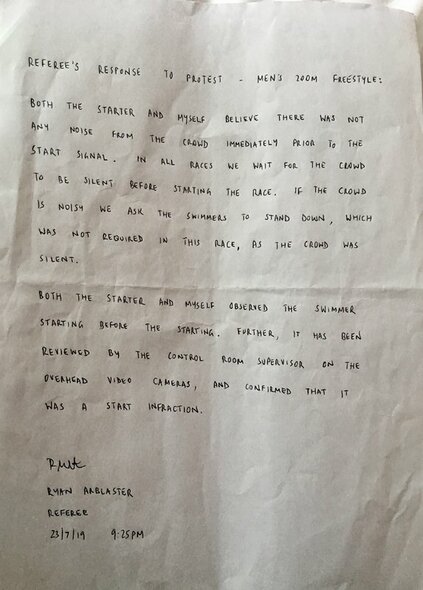 REFEREE'S RESPONSE TO PROTEST - MEN'S 200M FREESTYLE:
BOTH THE STARTER AND MYSELF BELIEVE THERE WAS NOT
ANY NOISE FROM THE CROWD IMMEDIATELY PRIOR TO THE
START SIGNAL. IN ALL RACES WE WAIT FOR THE CROWD
TO BE SILENT BEFORE STARTING THE RACE. IF THE CROWD
IS NOISY WE ASK THE SWIMMERS TO STAND DOWN, WHICH
WAS NOT REQUIRED IN THIS RACE, AS THE CROWD WAS
SILENT.
BOTH THE STARTER AND MYSELF OBSERVED THE SWIMMER
STARTING BEFORE THE STARTING. FURTHER, IT HAS BEEN
REVIEWED BY THE CONTROL ROOM SUPERVISOR ON THE
OVERHEAD VIDEO CAMERAS, AND CONFIRMED THAT IT
WAS A START INFRACTION.
RYAN ARBLASTER
REFEREE
23/7/19 9:25PM